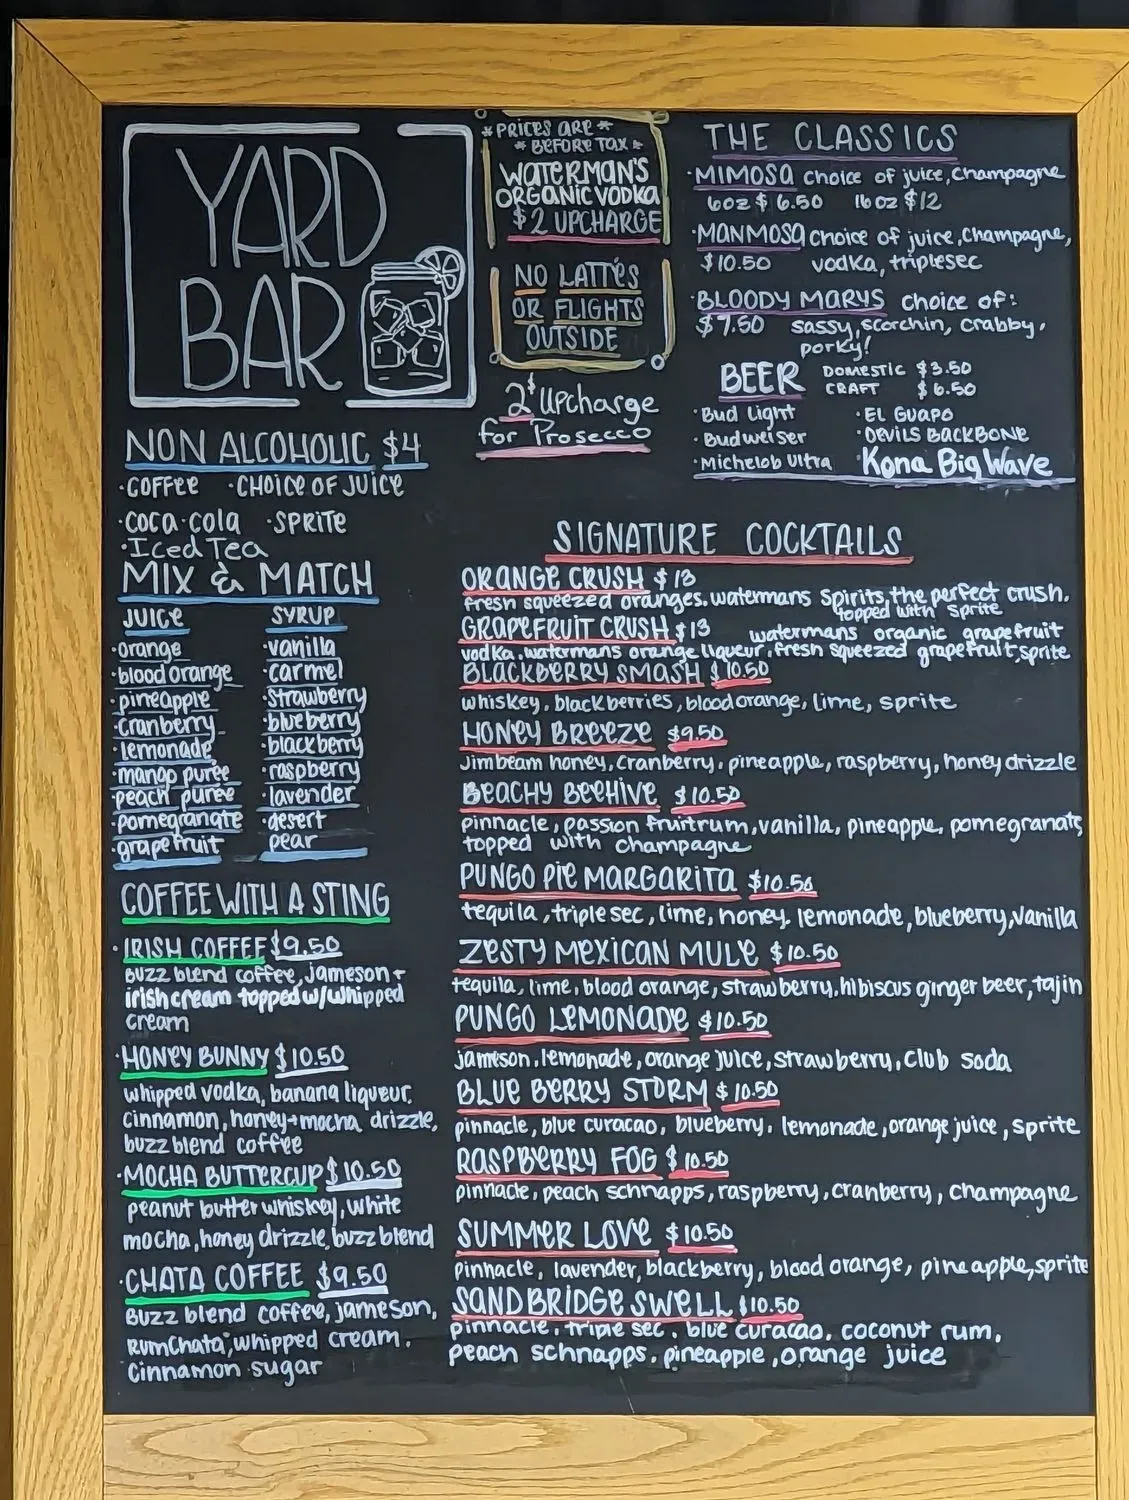 YARD
BAR
*PRICES ARE*
*BEFORE TAX*
WATERMAN'S
ORGANIC VODKA
$2 UPCHARGE
NO LATTÉS
OR FLIGHTS
OUTSIDE
2$ Upcharge
for Prosecco
THE CLASSICS
·MIMOSA choice of juice, champagne
6oz $6.50 16oz $12
·MANMOSA choice of juice, champagne,
$10.50 vodka, triplesec
·BLOODY MARYS choice of:
$7.50 sassy, scorchin, crabby,
porky!
BEER DOMESTIC $3.50
CRAFT $6.50
·Bud Light ·EL GUAPO
·Budweiser ·DEVILS BACKBONE
·Michelob Ultra ·Kona Big Wave
NON ALCOHOLIC $4
·COFFEE ·CHOICE OF JUICE
·COCA-COLA ·SPRITE
·Iced Tea
MIX & MATCH
JUICE SYRUP
·orange ·vanilla
·blood orange ·carmel
·pineapple ·strawberry
·cranberry ·blueberry
·lemonade ·blackberry
·mango purée ·raspberry
·peach purée ·lavender
·pomegranate ·desert
·grapefruit pear
COFFEE WITH A STING
·IRISH COFFEE $9.50
Buzz blend coffee, jameson +
irish cream topped w/whipped
cream
·HONEY BUNNY $10.50
whipped vodka, banana liqueur,
cinnamon, honey+mocha drizzle,
buzz blend coffee
·MOCHA BUTTERCUP $10.50
peanut butter whiskey, white
mocha, honey drizzle, buzz blend
·CHATA COFFEE $9.50
Buzz blend coffee, jameson,
RumChata, whipped cream,
cinnamon sugar
SIGNATURE COCKTAILS
ORANGE CRUSH $13
fresh squeezed oranges, watermans spirits, the perfect crush,
topped with sprite
GRAPEFRUIT CRUSH $13 watermans organic grapefruit
vodka, watermans orange liqueur, fresh squeezed grapefruit, sprite
BLACKBERRY SMASH $10.50
whiskey, blackberries, blood orange, lime, sprite
HONEY BREEZE $9.50
Jimbeam honey, cranberry, pineapple, raspberry, honey drizzle
BEACHY BEEHIVE $10.50
pinnacle, passion fruit rum, vanilla, pineapple, pomegranate
topped with champagne
PUNGO PIE MARGARITA $10.50
tequila, triple sec, lime, honey, lemonade, blueberry, vanilla
ZESTY MEXICAN MULE $10.50
tequila, lime, blood orange, strawberry, hibiscus ginger beer, tajin
PUNGO LEMONADE $10.50
jameson, lemonade, orange juice, strawberry, club soda
BLUE BERRY STORM $10.50
pinnacle, blue curacao, blueberry, lemonade, orange juice, sprite
RASPBERRY FOG $10.50
pinnacle, peach schnapps, raspberry, cranberry, champagne
SUMMER LOVE $10.50
pinnacle, lavender, blackberry, blood orange, pineapple, sprite
SANDBRIDGE SWELL $10.50
pinnacle, triple sec, blue curacao, coconut rum,
peach schnapps, pineapple, orange juice